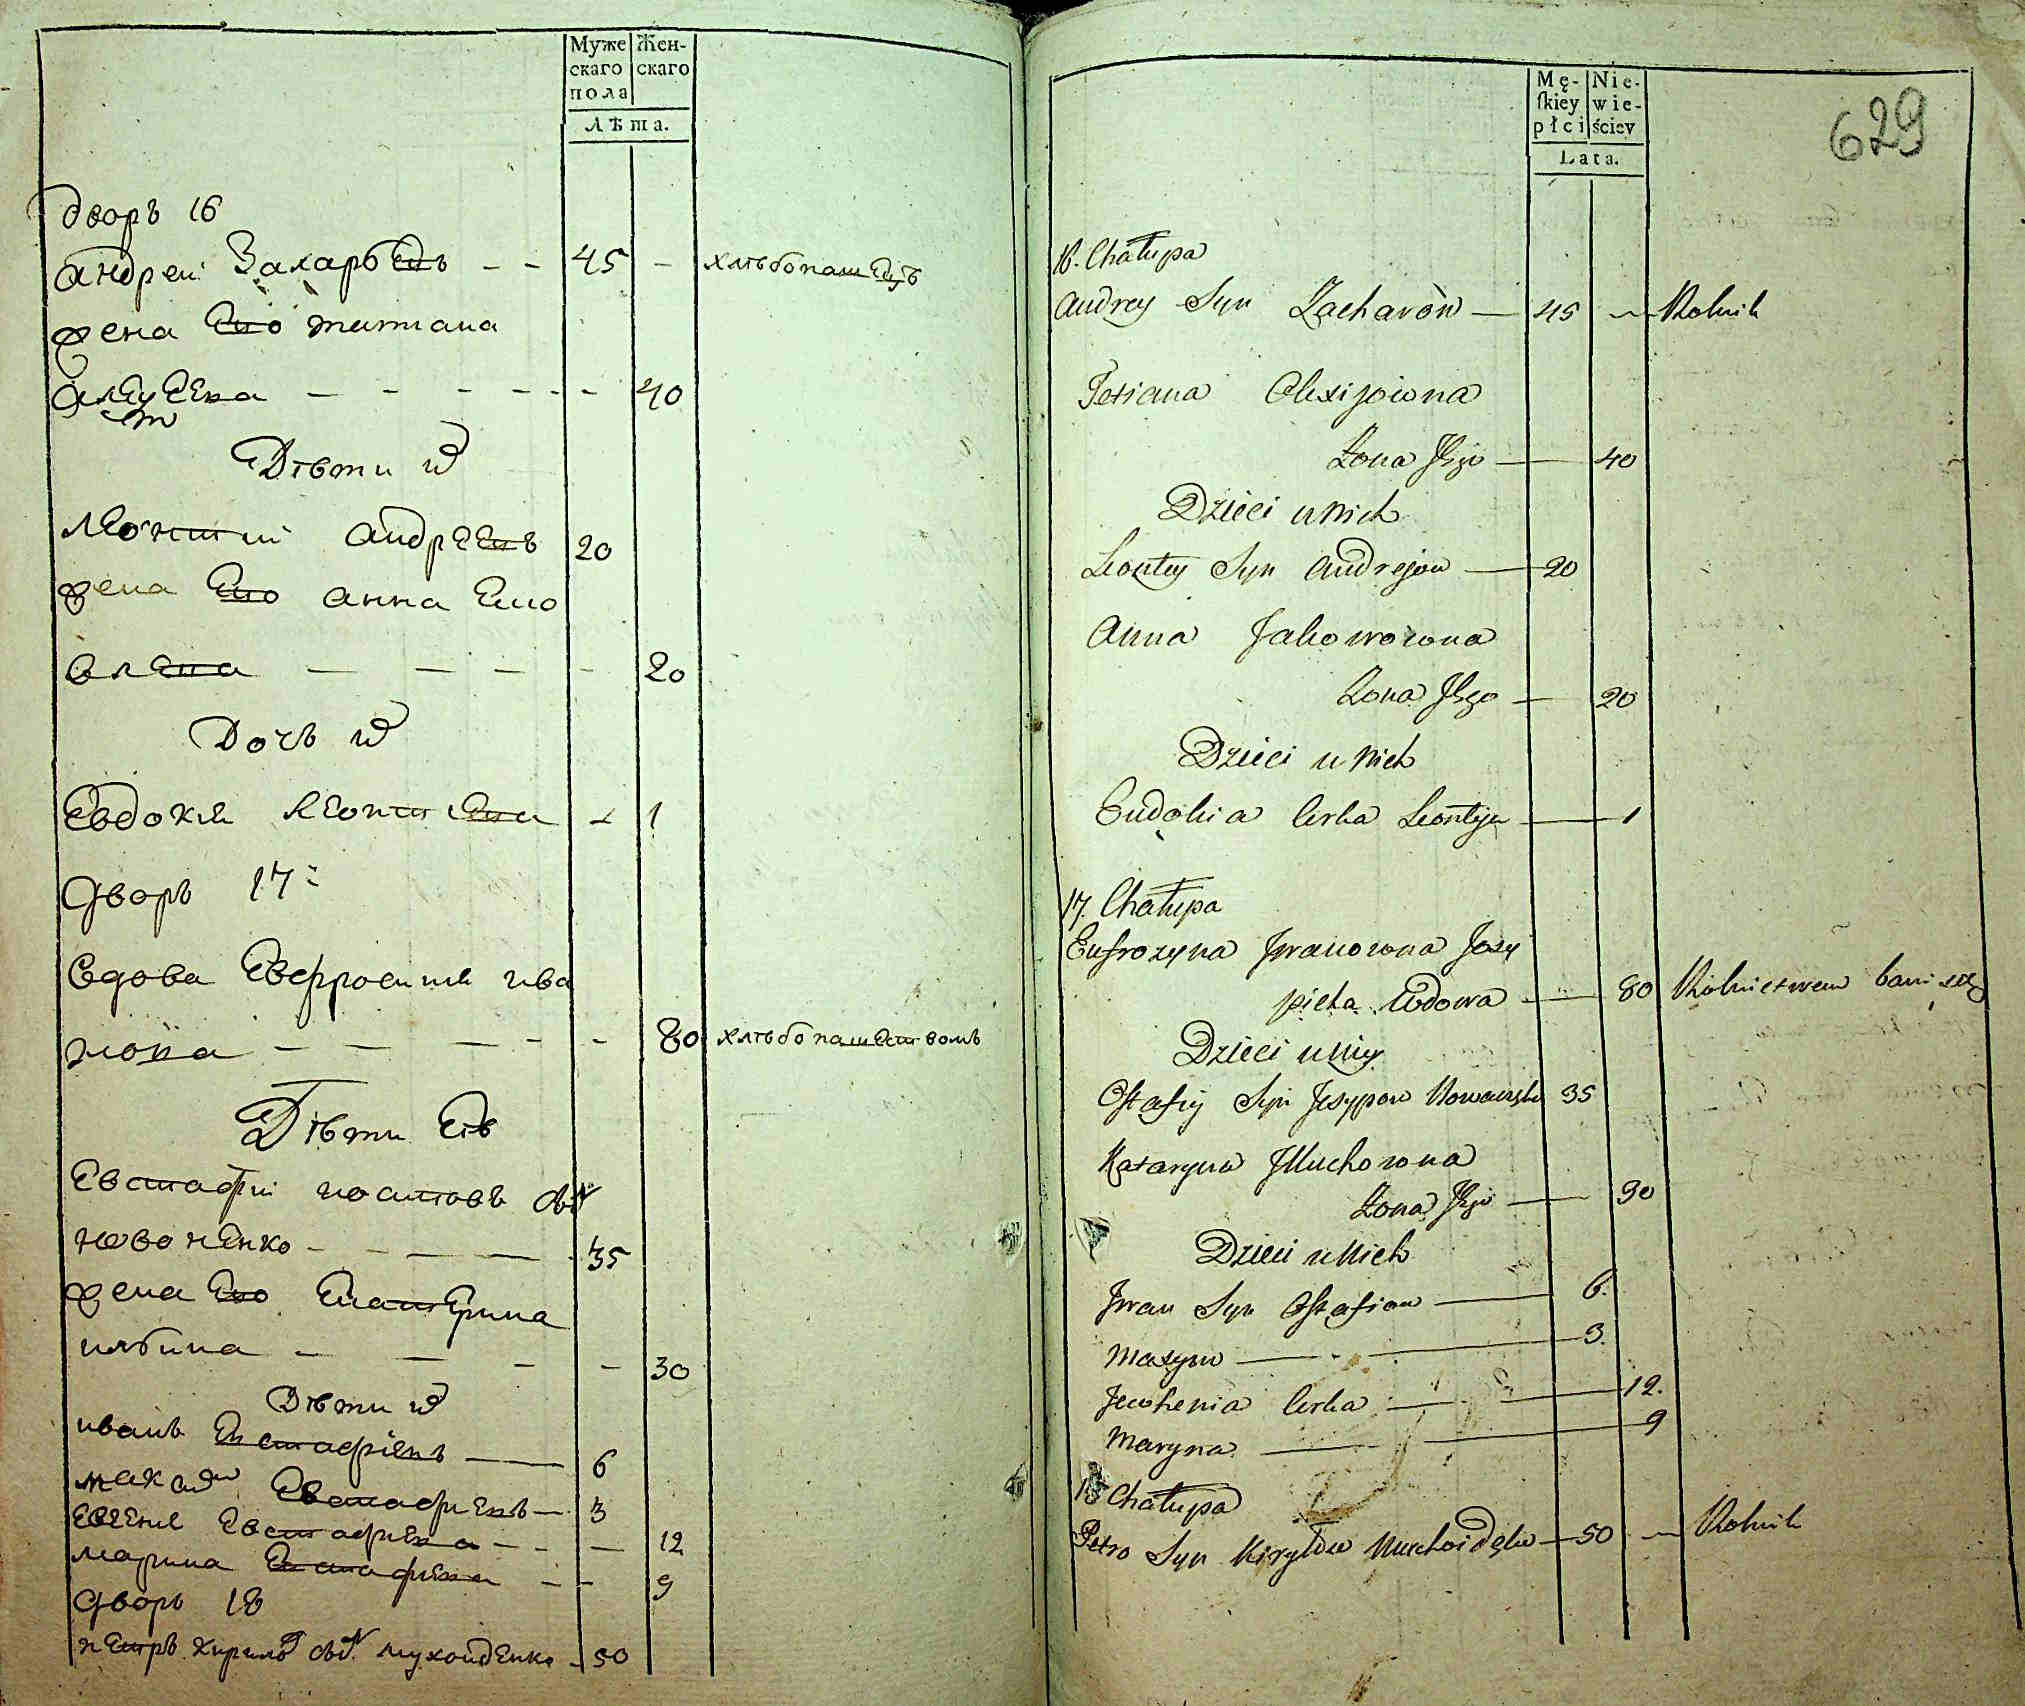 Муже
скаго
пола
Жен-
скаго
лѣта.
дворъ 16
андреи Захарьевъ - - 45 - хлѣбопашецъ
жена Его татиана
алеѯеева - - - - - - 40
Дѣти их
леонтии андреевъ 20
жена Его анна Еко
влева - - - - 20
Дочь их
Евдокия леонтиева - 1
дворъ 17
вдова Евфросиния ива
нова - - - - - 80 хлѣбопашествомъ
Дѣти Еѣ
Евстафии иосиповъ сын
новаченко - - - - 35
жена Его Екатерина
ильина - - - - 30
Дѣти их
иванъ Евстафиевъ - 6
максим Евстафиевъ - 3
евгения Евстафиева - - - 12
марина Евстафиева - - 9
дворъ 18
петръ кирилов сын мухоиденко - 50
Mę-
ſkiey
płci
Nie-
wie-
ściey
Lata.
629
16. Chałupa
Andrey Syn Zacharów — 45 — Rolnik
Tetiana Olexijowna
Zona Jego — 40
Dzieci u Nich
Leontey Syn Andrejow — 20
Anna Jakowowna
Zona Jego — 20
Dzieci u Nich
Eudokia Corka Leontja — 1
17. Chałupa
Eufrozyna Jwanowna Josy
picha Wdowa — 80 Rolnictwem bawi się
Dzieci u Niey
Ostafiy Syn Jesypow 35
Kataryna Jlluchowna
Zona Jego — 30
Dzieci u Nich
Jwan Syn Ostafiow — 6.
Maxym — 3.
Jewhenia Corka — 12.
Maryna — 9
18 Chałupa
Petro Syn Kiryłow Muchoidęko — 50 — Rolnik